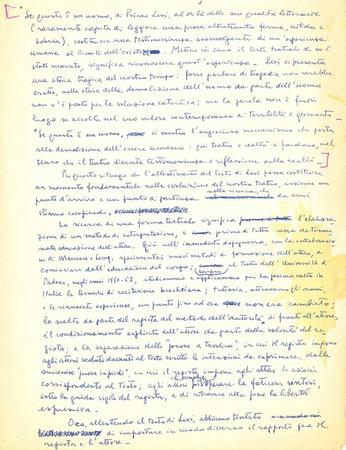 "Se questo è un uomo, di Primo Levi, al di là delle sue qualità letterarie
(raramente capita di leggere una prosa altrettanto ferma, nitida e
sobria), costituisce una testimonianza sconvolgente di un'esperienza
umana al limite dell'esistenza. Mettere in scena il testo teatrale che ne è
stato ricavato, significa riconoscere quest'esperienza. Levi ci presenta
una storia tragica del nostro tempo; forse parlare di tragedia non sarebbe
errato, nella storia della demolizione dell'uomo da parte dell'uomo
non v'è posto per la soluzione catartica; ma la parola non è fuori
luogo se accolta nel suo valore contemporaneo di terribilità e
"Se questo è un uomo, ci mostra l'angoscioso meccanismo che porta
alla demolizione dell'essere umano: qui teatro e realtà si fondono, nel
senso che il teatro diventa testimonianza e riflessione sulla realtà.
Per questo ritengo che l'allestimento del testo di Levi possa costituire
un momento fondamentale nella evoluzione del nostro teatro, insieme un
punto d'arrivo e un punto di partenza nella ricerca che da anni
stiamo compiendo.
La ricerca di una forma teatrale significa l'elabora
zione di un metodo di interpretazione, e prima di tutto una determi
nata educazione dell'attore. Già nell'immediato dopoguerra, con la collaborazio
ne di sperimentai nuovi metodi di formazione dell'attore, a
cominciare dall'educazione del corpo; il Teatro dell'Università di
Padova, negli anni applicammo per la prima volta in
Italia la tecnica di recitazione brechtiana; tuttavia, attraverso gli anni,
e le ricorrenti esperienze, un punto fino ad ora non era cambiato:
la scelta da parte del regista del metodo dell'autorità di fronte all'attore,
il condizionamento esplicito dell'attore da parte della volontà del re
gista; e la separazione delle "prove a tavolino", in cui il regista impone
agli attori seduti davanti al testo scritto le intenzioni da esprimere, dalle
successive "prove in piedi", in cui il regista impone agli attori le azioni
corrispondenti al testo; agli attori superare la faticosa
sotto la guida vigile del regista, e di ritrovare alla fine la libertà
espressiva.
Ora, allestendo il testo di Levi, abbiamo tentato
di impostare in modo diverso il rapporto fra il
regista e l'attore.